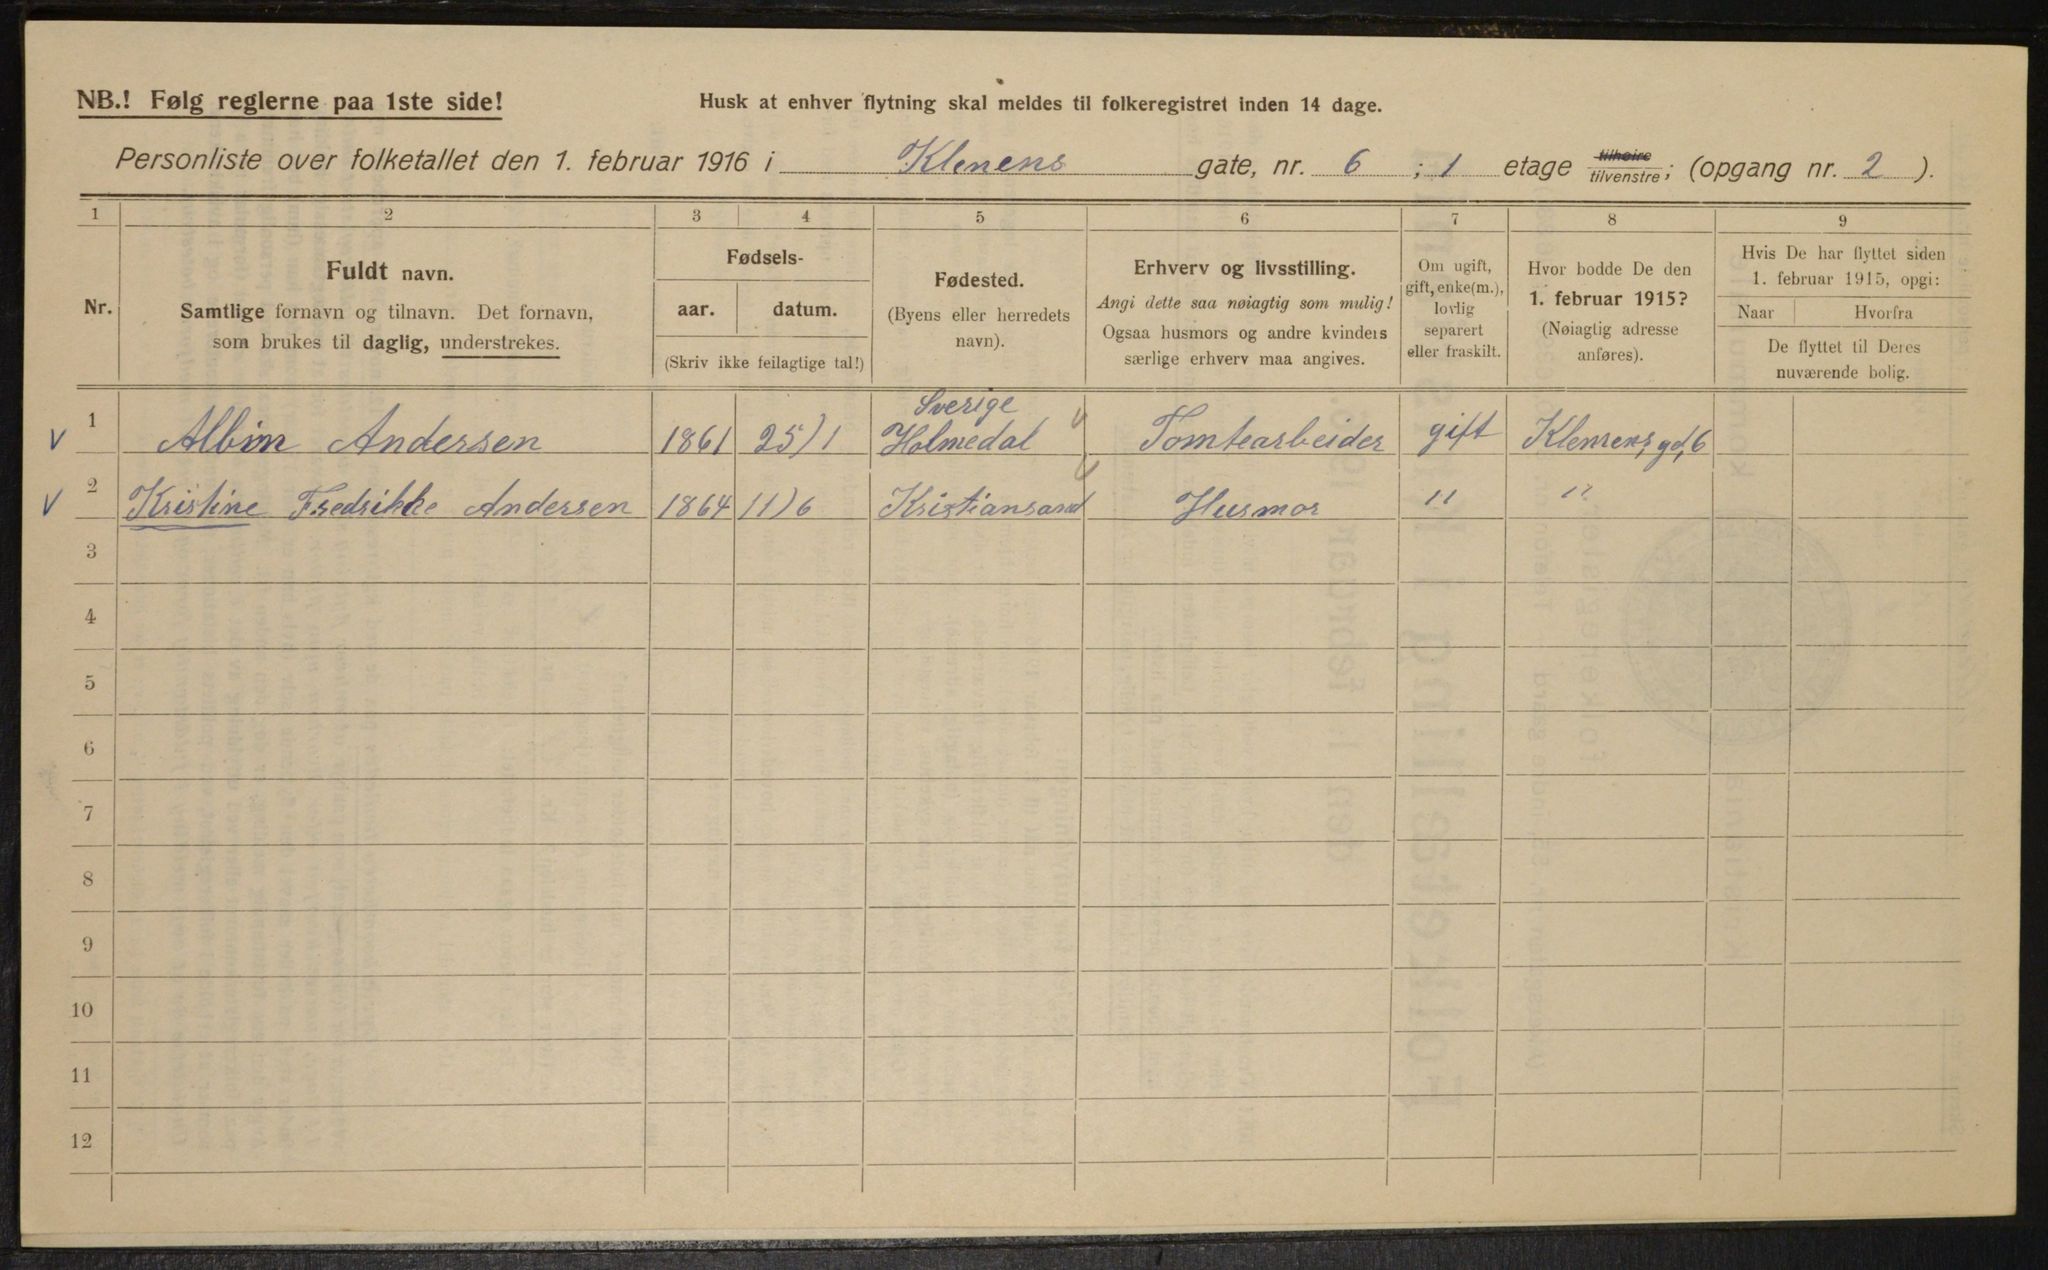 NB.! Følg reglerne paa 1ste side!
Husk at enhver flytning skal meldes til folkeregistret inden 14 dage.
Personliste over folketallet den 1. februar 1916 i Klenens gate, nr. 6 ; 1 etage tilhøire tilvenstre; (opgang nr. 2 ).
1 2 3 4 5 6 7 8 9
Nr.
Fuldt navn.
Samtlige fornavn og tilnavn. Det fornavn,
som brukes til daglig, understrekes.
Fødsels-
aar. datum.
(Skriv ikke feilagtige tal!)
Fødested.
(Byens eller herredets
navn).
Erhverv og livsstilling.
Angi dette saa nøiagtig som mulig!
Ogsaa husmors og andre kvinders
særlige erhverv maa angives.
Om ugift,
gift, enke(m.),
lovlig
separert
eller fraskilt.
Hvor bodde De den
1. februar 1915?
(Nøiagtig adresse
anføres).
Hvis De har flyttet siden
1. februar 1915, opgi:
Naar Hvorfra
De flyttet til Deres
nuværende bolig.
Sverige
V 1 Albin Andersen 1861 25/1 Holmedal Tomtearbeider gift Klemens gd, 6
V 2 Kristine Fredrikke Andersen 1864 11/6 Kristiansand Husmor " "
3
4
5
6
7
8
9
10
11
12